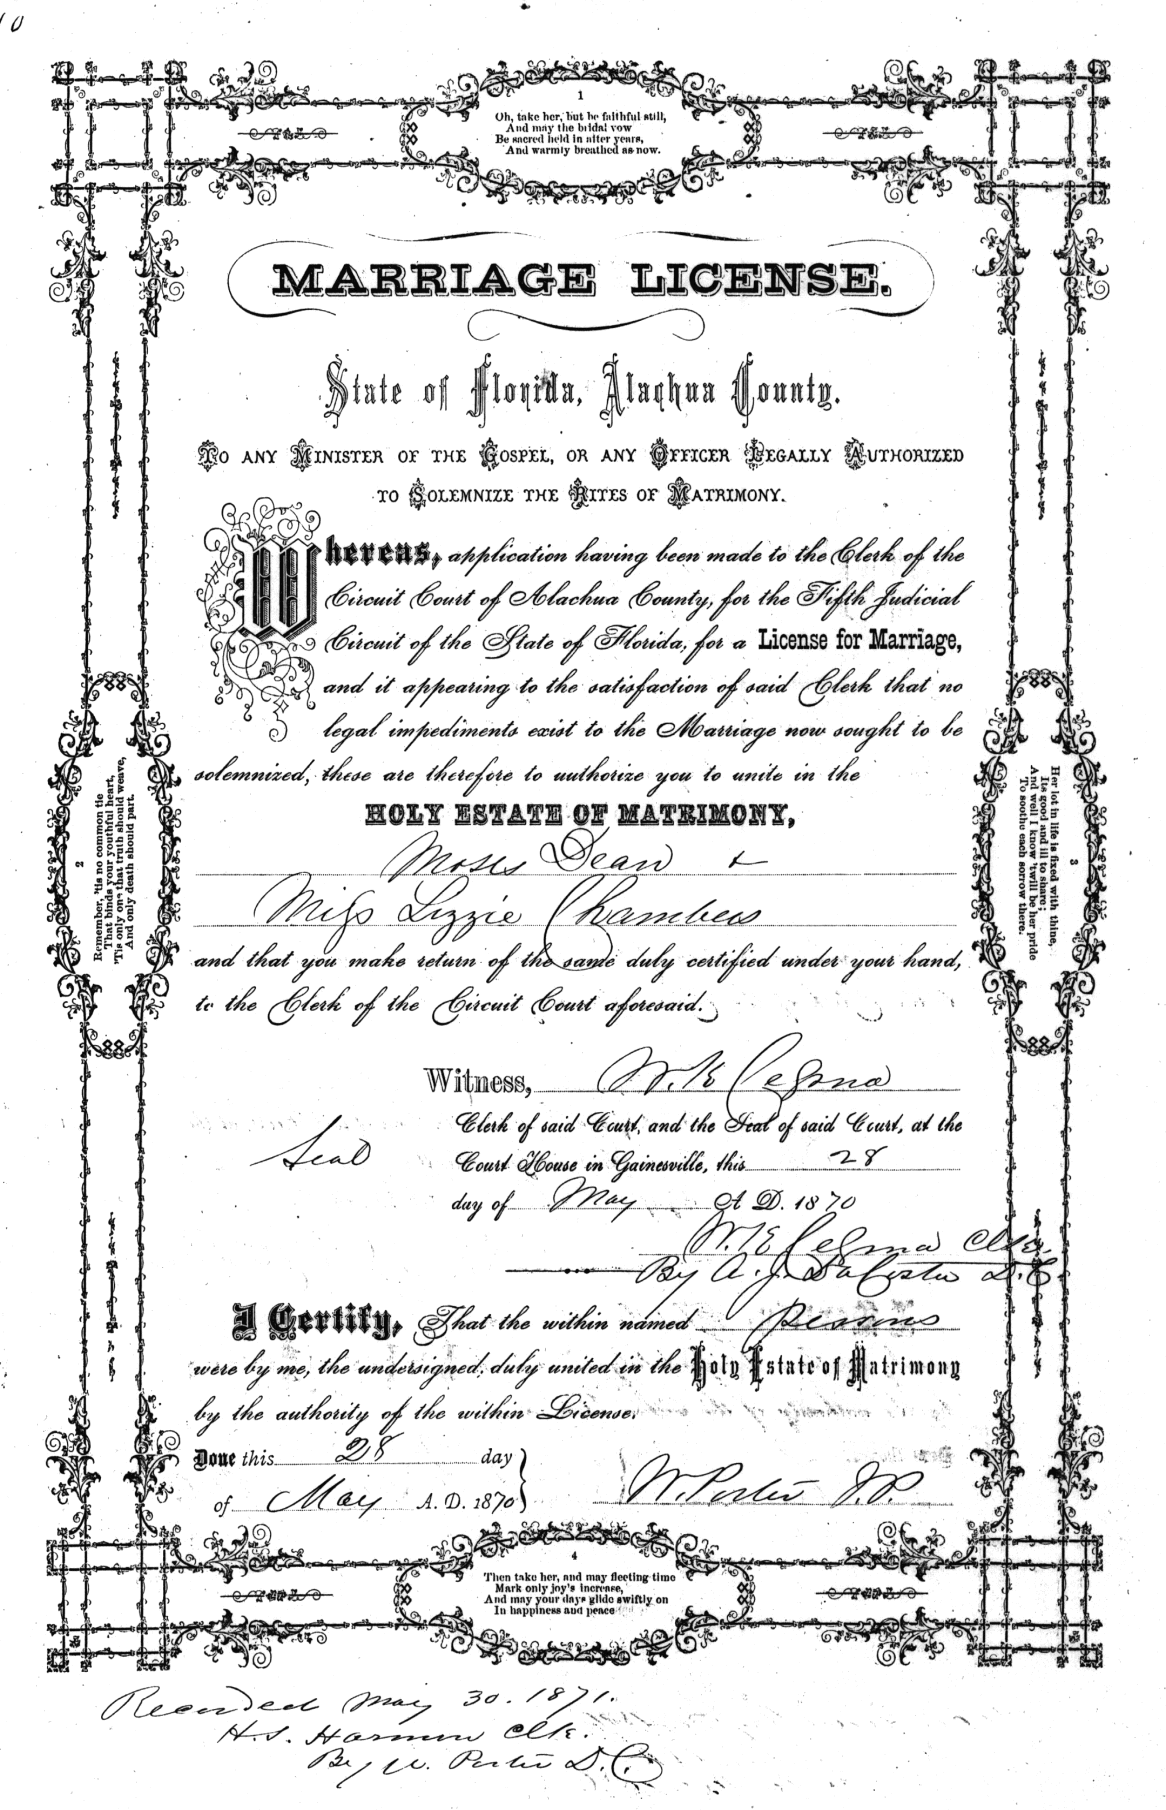 10
1
Oh, take her, but be faithful still,
And may the bridal vow
Be sacred held in after years,
And warmly breathed as now.
MARRIAGE LICENSE.
State of Florida, Alachua County.
TO ANY MINISTER OF THE GOSPEL, OR ANY OFFICER LEGALLY AUTHORIZED
TO SOLEMNIZE THE RITES OF MATRIMONY.
Whereas, application having been made to the Clerk of the
Circuit Court of Alachua County, for the Fifth Judicial
Circuit of the State of Florida, for a License for Marriage,
and it appearing to the satisfaction of said Clerk that no
legal impediments exist to the Marriage now sought to be
solemnized, these are therefore to authorize you to unite in the
HOLY ESTATE OF MATRIMONY,
Moses Dean &
Miss Lizzie Chambers
and that you make return of the same duly certified under your hand,
to the Clerk of the Circuit Court aforesaid.
2
Remember, 'tis no common tie
That binds your youthful heart,
'Tis only one that truth should weave,
And only death should part.
3
Her lot in life is fixed with thine,
Its good and ill to share;
And well I know 'twill be her pride
To soothe each sorrow there.
Witness, W. K Cessna
Clerk of said Court, and the Seal of said Court, at the
Seal
Court House in Gainesville, this 28
day of May A D. 1870
W. K Cessna Clk.
By A. J. DaCosta D.C.
I Certify, That the within named Persons
were by me, the undersigned, duly united in the Holy Estate of Matrimony
by the authority of the within License.
Done this 28 day
of May A. D. 1870
W. Porter J.P.
4
Then take her, and may fleeting time
Mark only joy's increase,
And may your days glide swiftly on
In happiness and peace
Recorded May 30. 1871.
H.S. Harmon Clk.
By W. Porter D.C.